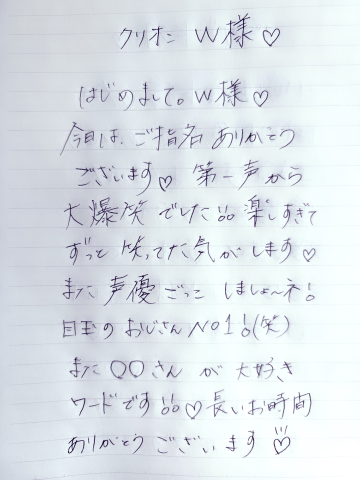 クリオン W様♡
はじめまして。W様♡
今日は、ご指名ありがとう
ございます♡ 第一声から
大爆笑でした!!楽しすぎて
ずっと笑ってた気がします♡
また声優ごっこしましょ〜ネ!
目玉のおじさんNO1!(笑)
また〇〇さんが大好き
ワードです!!♡長いお時間
ありがとうございます♡